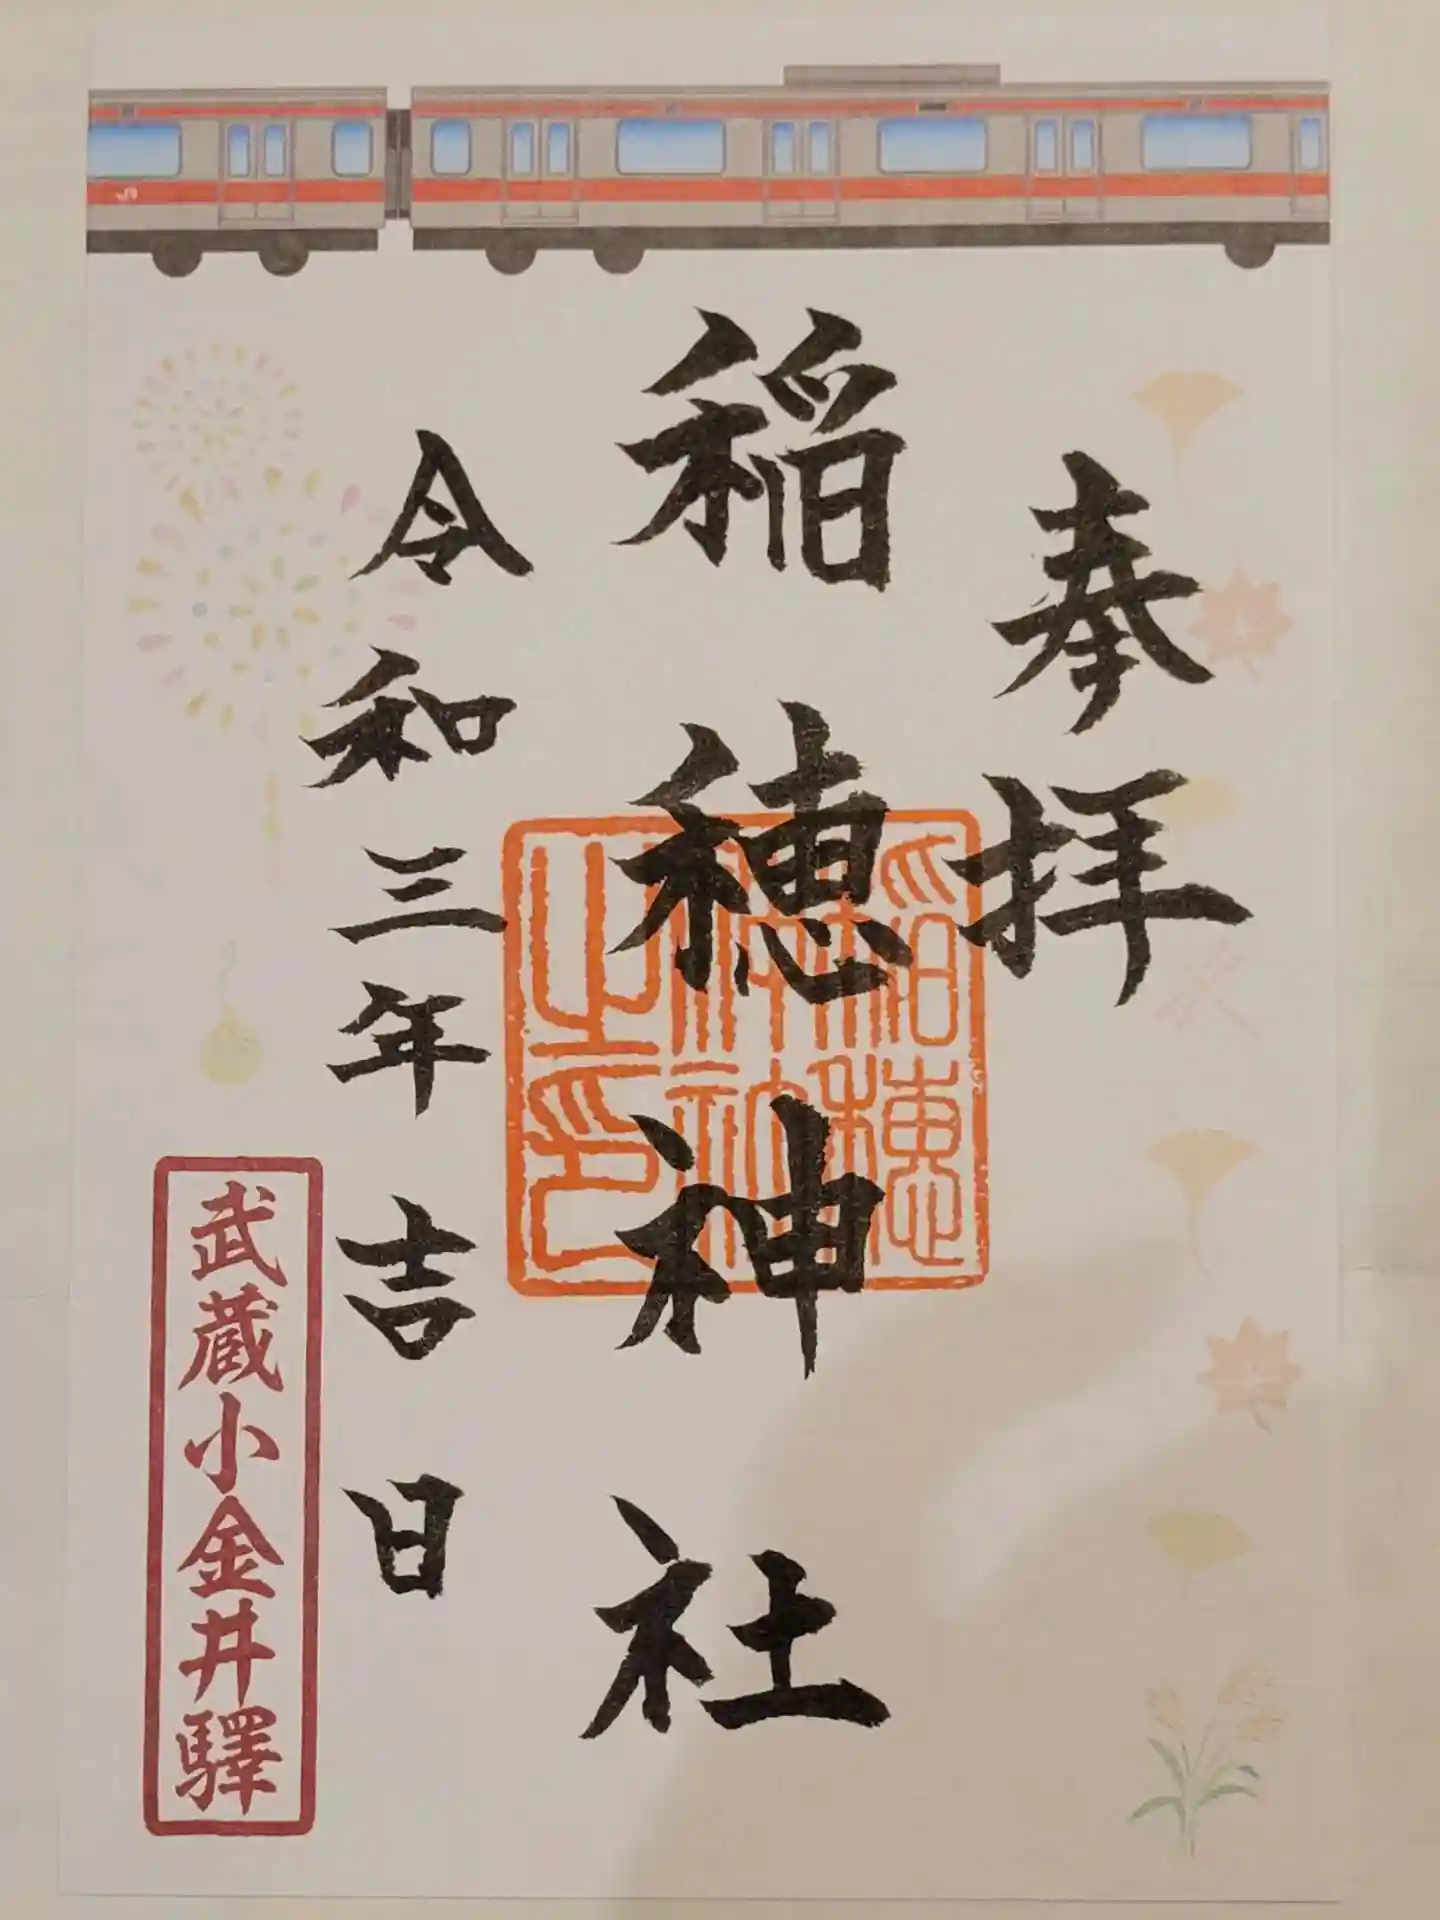 奉拝
稲穂神社
令和三年吉日
稲穂神社之印
武蔵小金井驛
JR